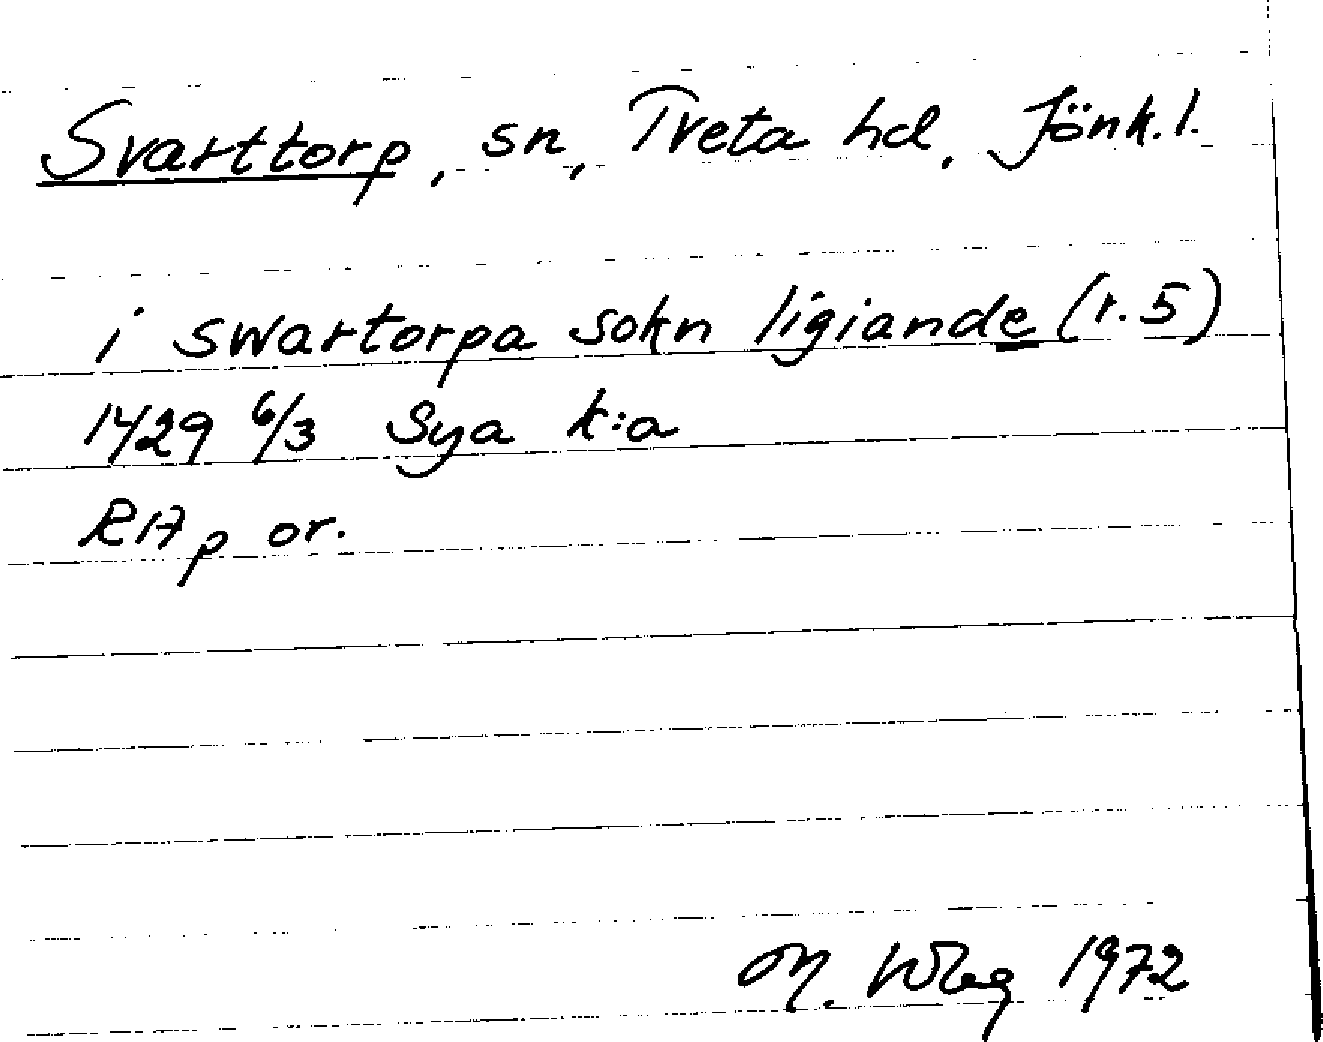 Svarttorp, sn, Tveta hd, Jönk.l.
i swartorpa sokn ligiande (r.5)
1429 6/3 Sya k:a
RAp or.
M. 1972